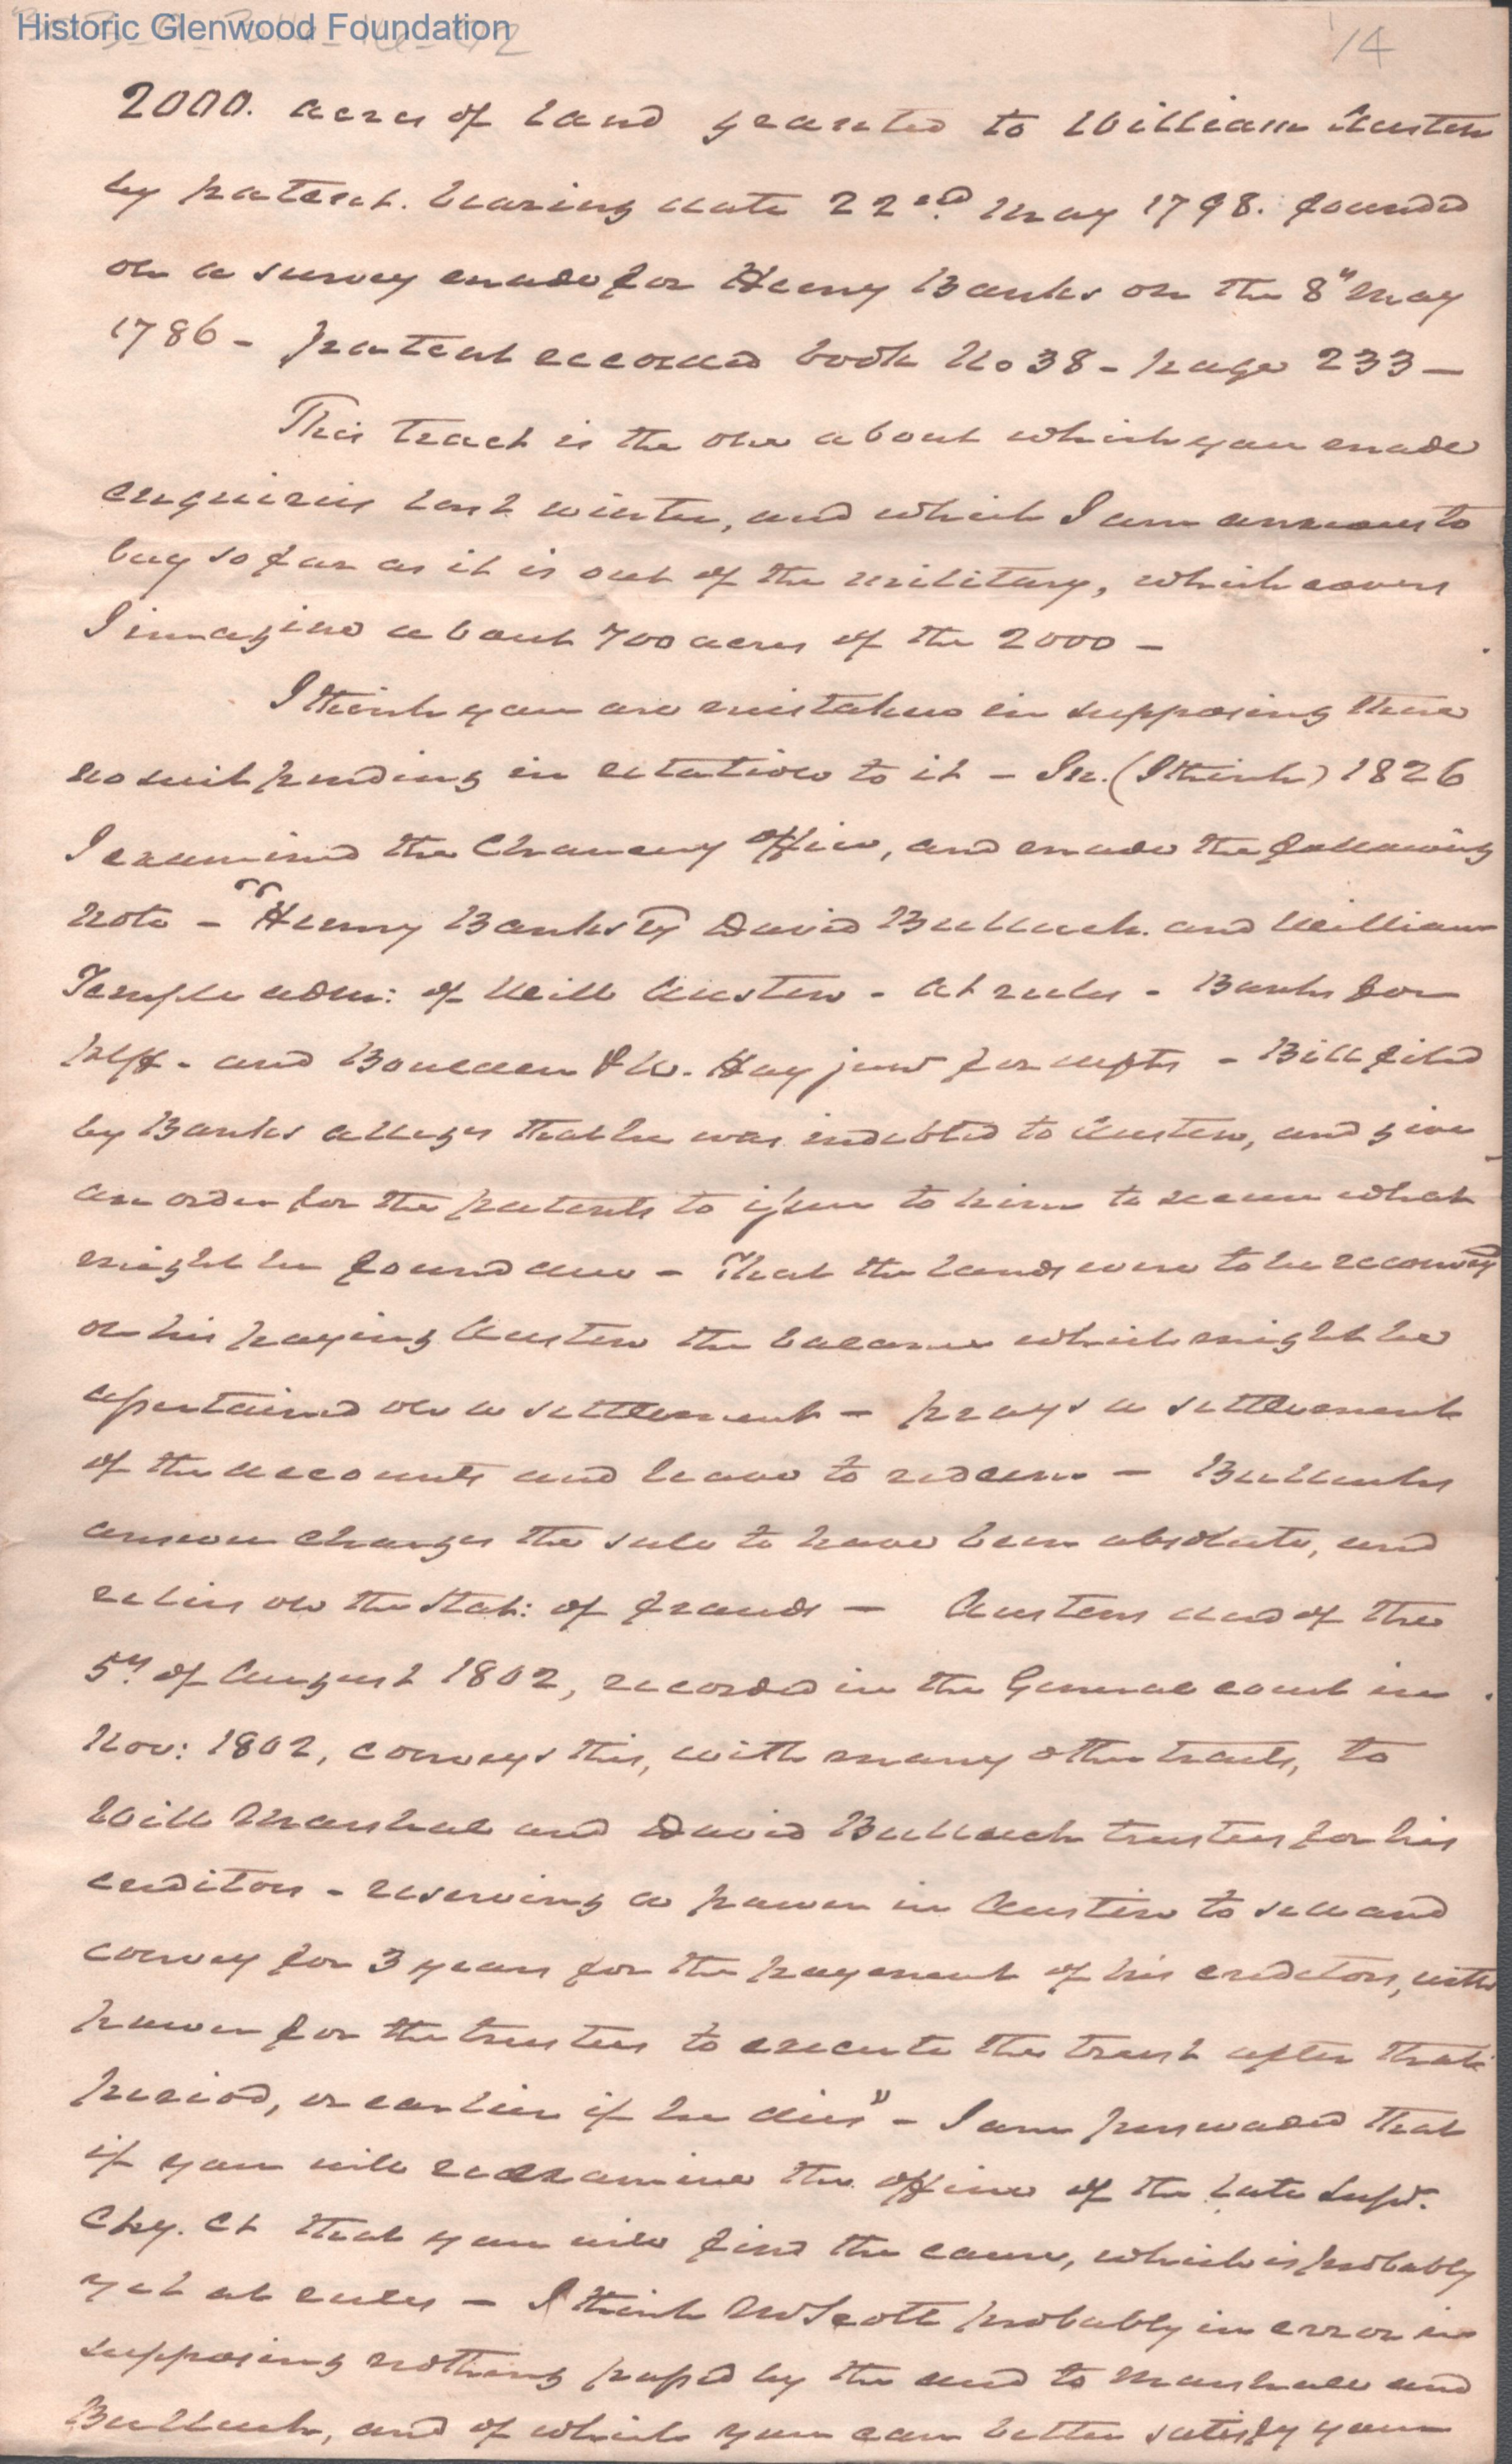 Historic Glenwood Foundation
14
2000. acres of land granted to William Austin
by patent. bearing date 22nd. May 1798. founded
on a survey made for Henry Banks on the 8" May
1786 - patent record book No 38 - page 233 -
This tract is the one about which you made
enquiries last winter, and which I am anxious to
buy so far as it is out of the military, which covers
I imagine about 700 acres of the 2000 -
I think you are mistaken in supposing there
no suit pending in relation to it - In. (I think) 1826
I examined the Chancery office, and made the following
note - "Henry Banks vs David Bullock. and William
Temple adm: of Will Austin - at rules - Banks for
plff. - and Bouldin & W. Hay junr for defts - Bill filed
by Banks alleges that he was indebted to Austin, and give
an order for the patents to issue to him to secure what
might be found due - That the lands were to be reconveyed
on his paying Austin the balance which might be
ascertained on a settlement - prays a settlement
of the accounts and leave to redeem - Bullocks
answer charges the sale to have been absolute, and
relies on the Stat: of frauds - Austins deed of the
5th of August 1802, recorded in the General court in
Nov: 1802, conveys this, with many other tracts, to
Will Marshall and David Bullock trustees for his
creditors - reserving a power in Austin to sell and
convey for 3 years for the payment of his creditors, with
power for the trustees to execute the trust after that
period, or earlier if he dies" - I am persuaded that
if you will reexamine the office of the late Supr.
Chy. Ct that you will find the cause, which is probably
yet at rules - I think Mr Scott probably in error in
supposing nothing passed by the deed to Marshall and
Bullock, and of which you can better satisfy your